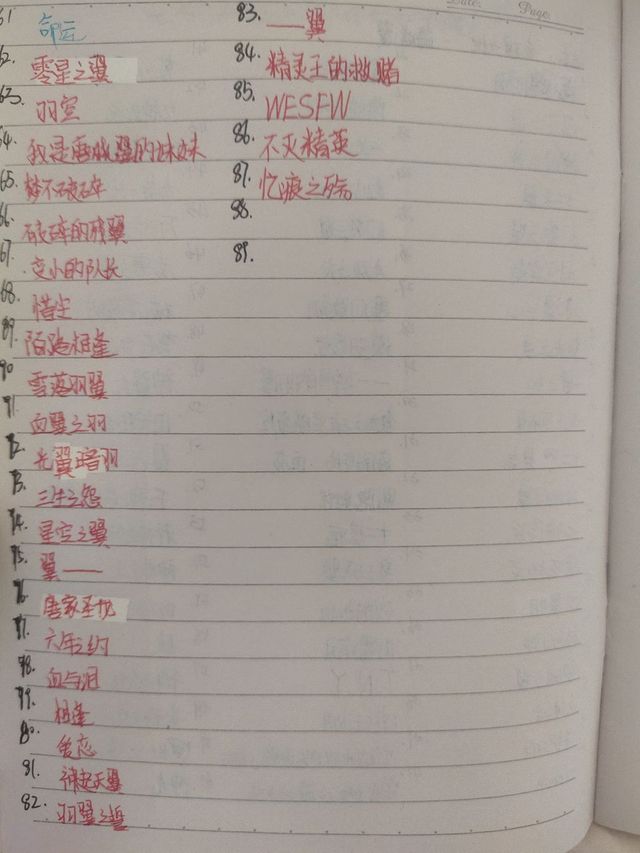 61 命运
62. 零星之翼
63. 羽宣
64. 我是唐晓翼的妹妹
65. 梦不破碎
66. 破碎的残翼
67. 变小的队长
68. 惜尘
69. 陌路相逢
70 雪落羽翼
71. 血翼之羽
72. 光翼暗羽
73. 三生之怨
74. 星空之翼
75. 翼——
76. 唐家圣托
77. 六年之约
78. 血与泪
79. 相逢
80. 复忘
81. 神起天翼
82. 羽翼之誓
Date: Page:
83. ——翼
84. 精灵王的救赌
85. WESFW
86. 不灭精英
87. 忆痕之殇
88.
89.